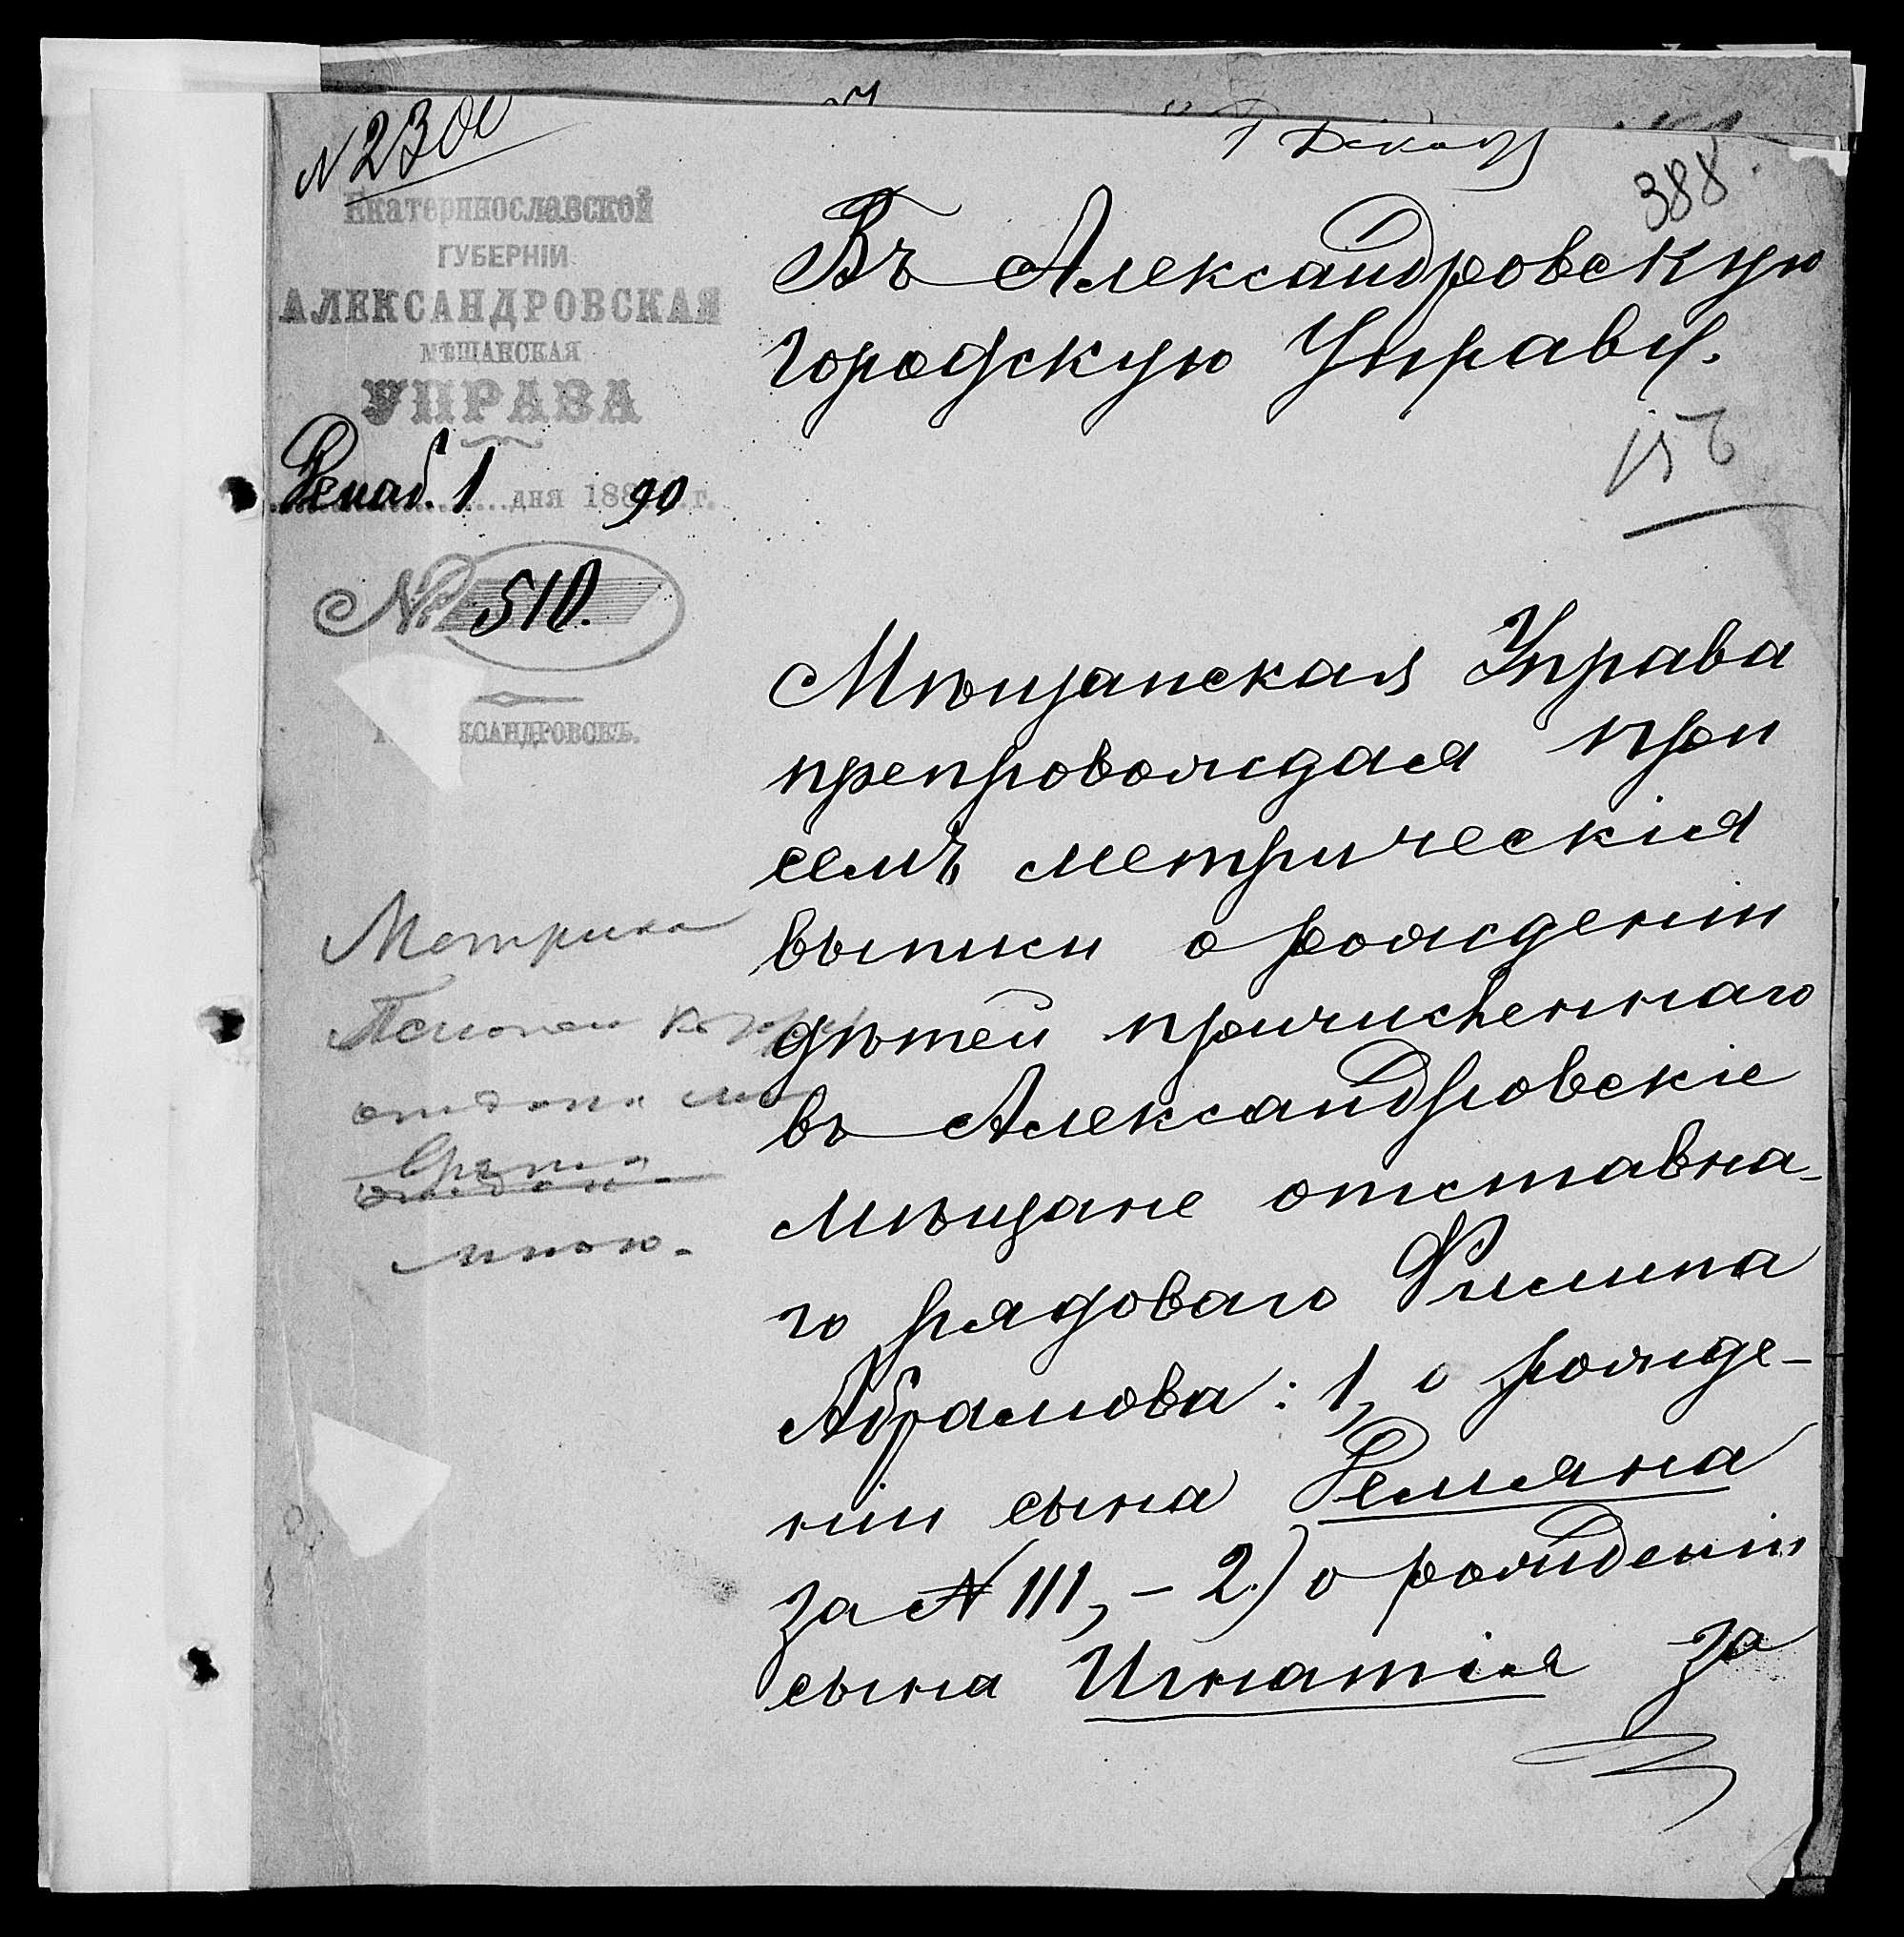 N 2300
388.
Екатеринославской
ГУБЕРНІИ
АЛЕКСАНДРОВСКАЯ
МѢЩАНСКАЯ
УПРАВА
Декаб. 1 дня 188 90 г.
№ 510.
КСАНДРОВСКЪ.
Въ Александровскую
городскую Управу.
Мѣщанская Управа
препровождая при
семъ метрическія
выписи о рожденіи
дѣтей причисленнаго
въ Александровскіе
мѣщане отставна-
го рядоваго Филипа
Абрамова: 1, о рожде-
ніи сына Демяна
за N 111, - 2) о рожденіи
сына Игнатія за
Метрика
мною.